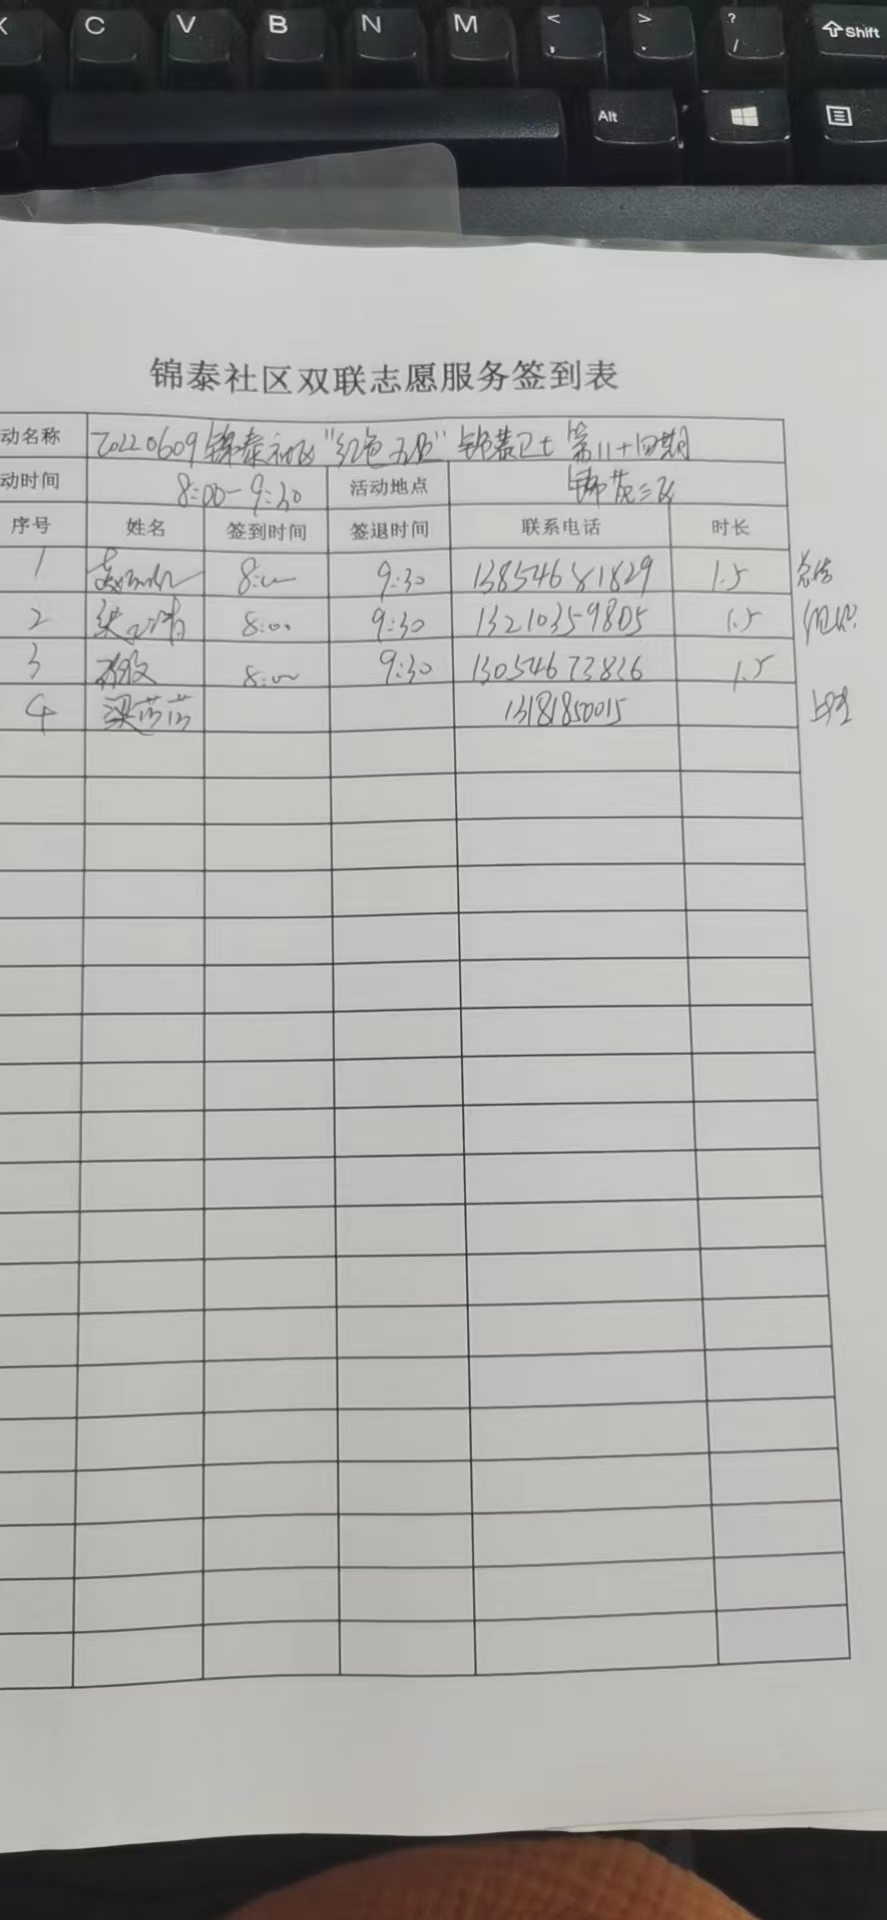 C V B N M < , > . ? / Shift
Alt
锦泰社区双联志愿服务签到表
动名称 20220609锦泰社区"红色 锦 卫士 第 十四期
动时间 8:00-9:30 活动地点 锦 三区
序号 姓名 签到时间 签退时间 联系电话 时长
1 8:00 9:30 13854681829 1.5 总结
2 8:00 9:30 13210359805 1.5 组织
3 8:00 9:30 13054673836 1.5
4 梁 13181850015 上传